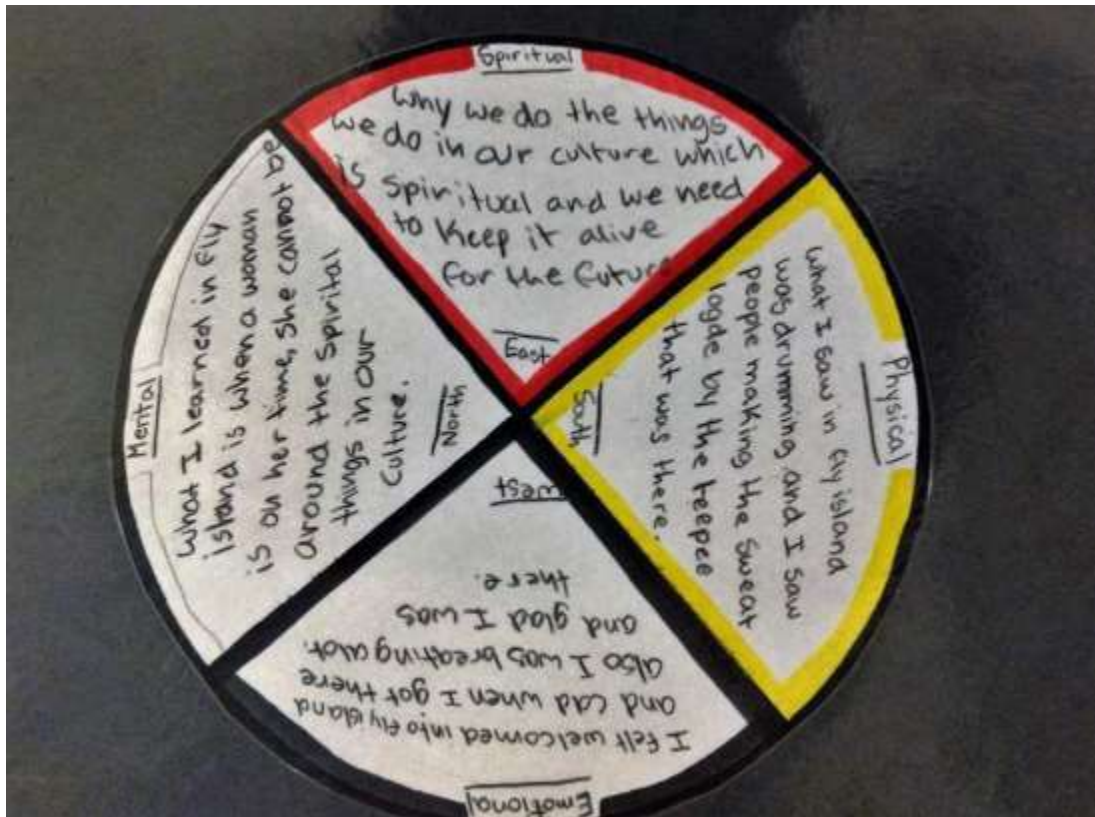 Spiritual
Why we do the things
we do in our culture which
is spiritual and we need
to keep it alive
for the future
East
Physical
what I saw in fly island
was drumming and I saw
people making the sweat
logde by the teepee
that was there.
South
Emotional
I felt welcomed into fly island
and cad when I got there
also I was breathing alot.
and glad I was
there.
West
Mental
What I learned in fly
island is when a woman
is on her time, she cannot be
around the Spirital
things in our
culture.
North